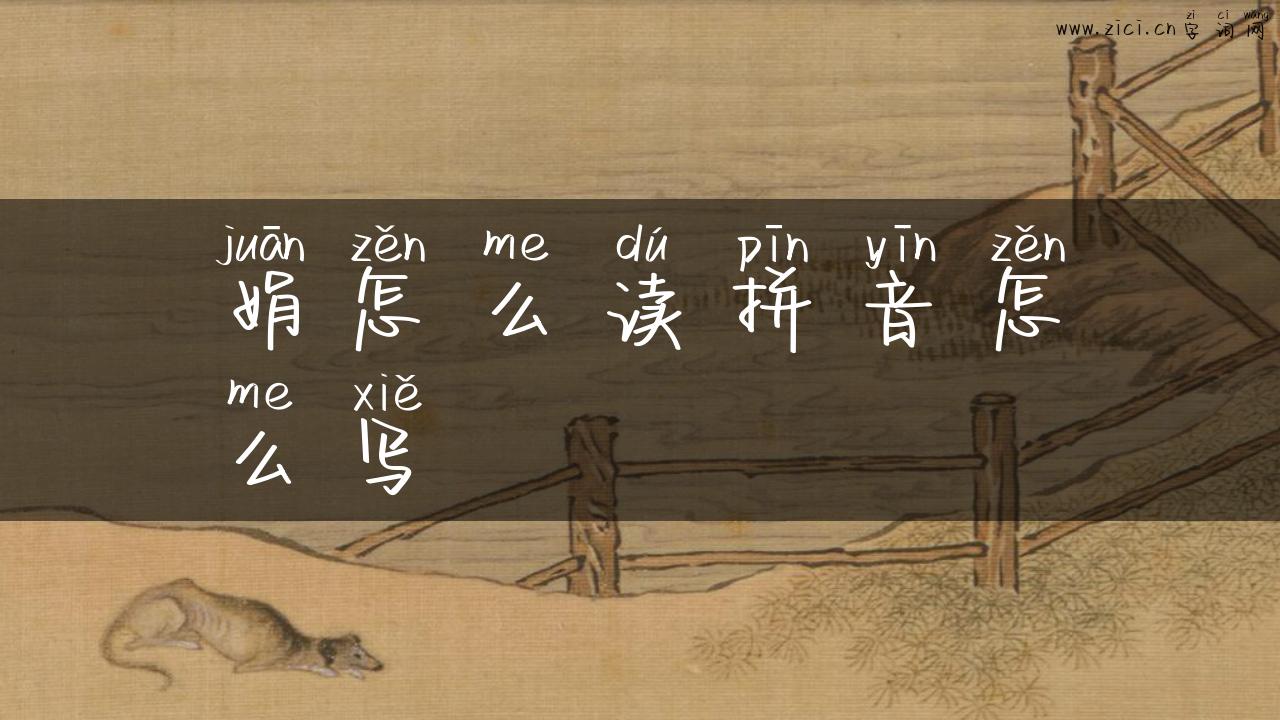 zi ci wang
www.zici.cn 字词网
juān zěn me dú pīn yīn zěn
娟怎么读拼音怎
me xiě
么写